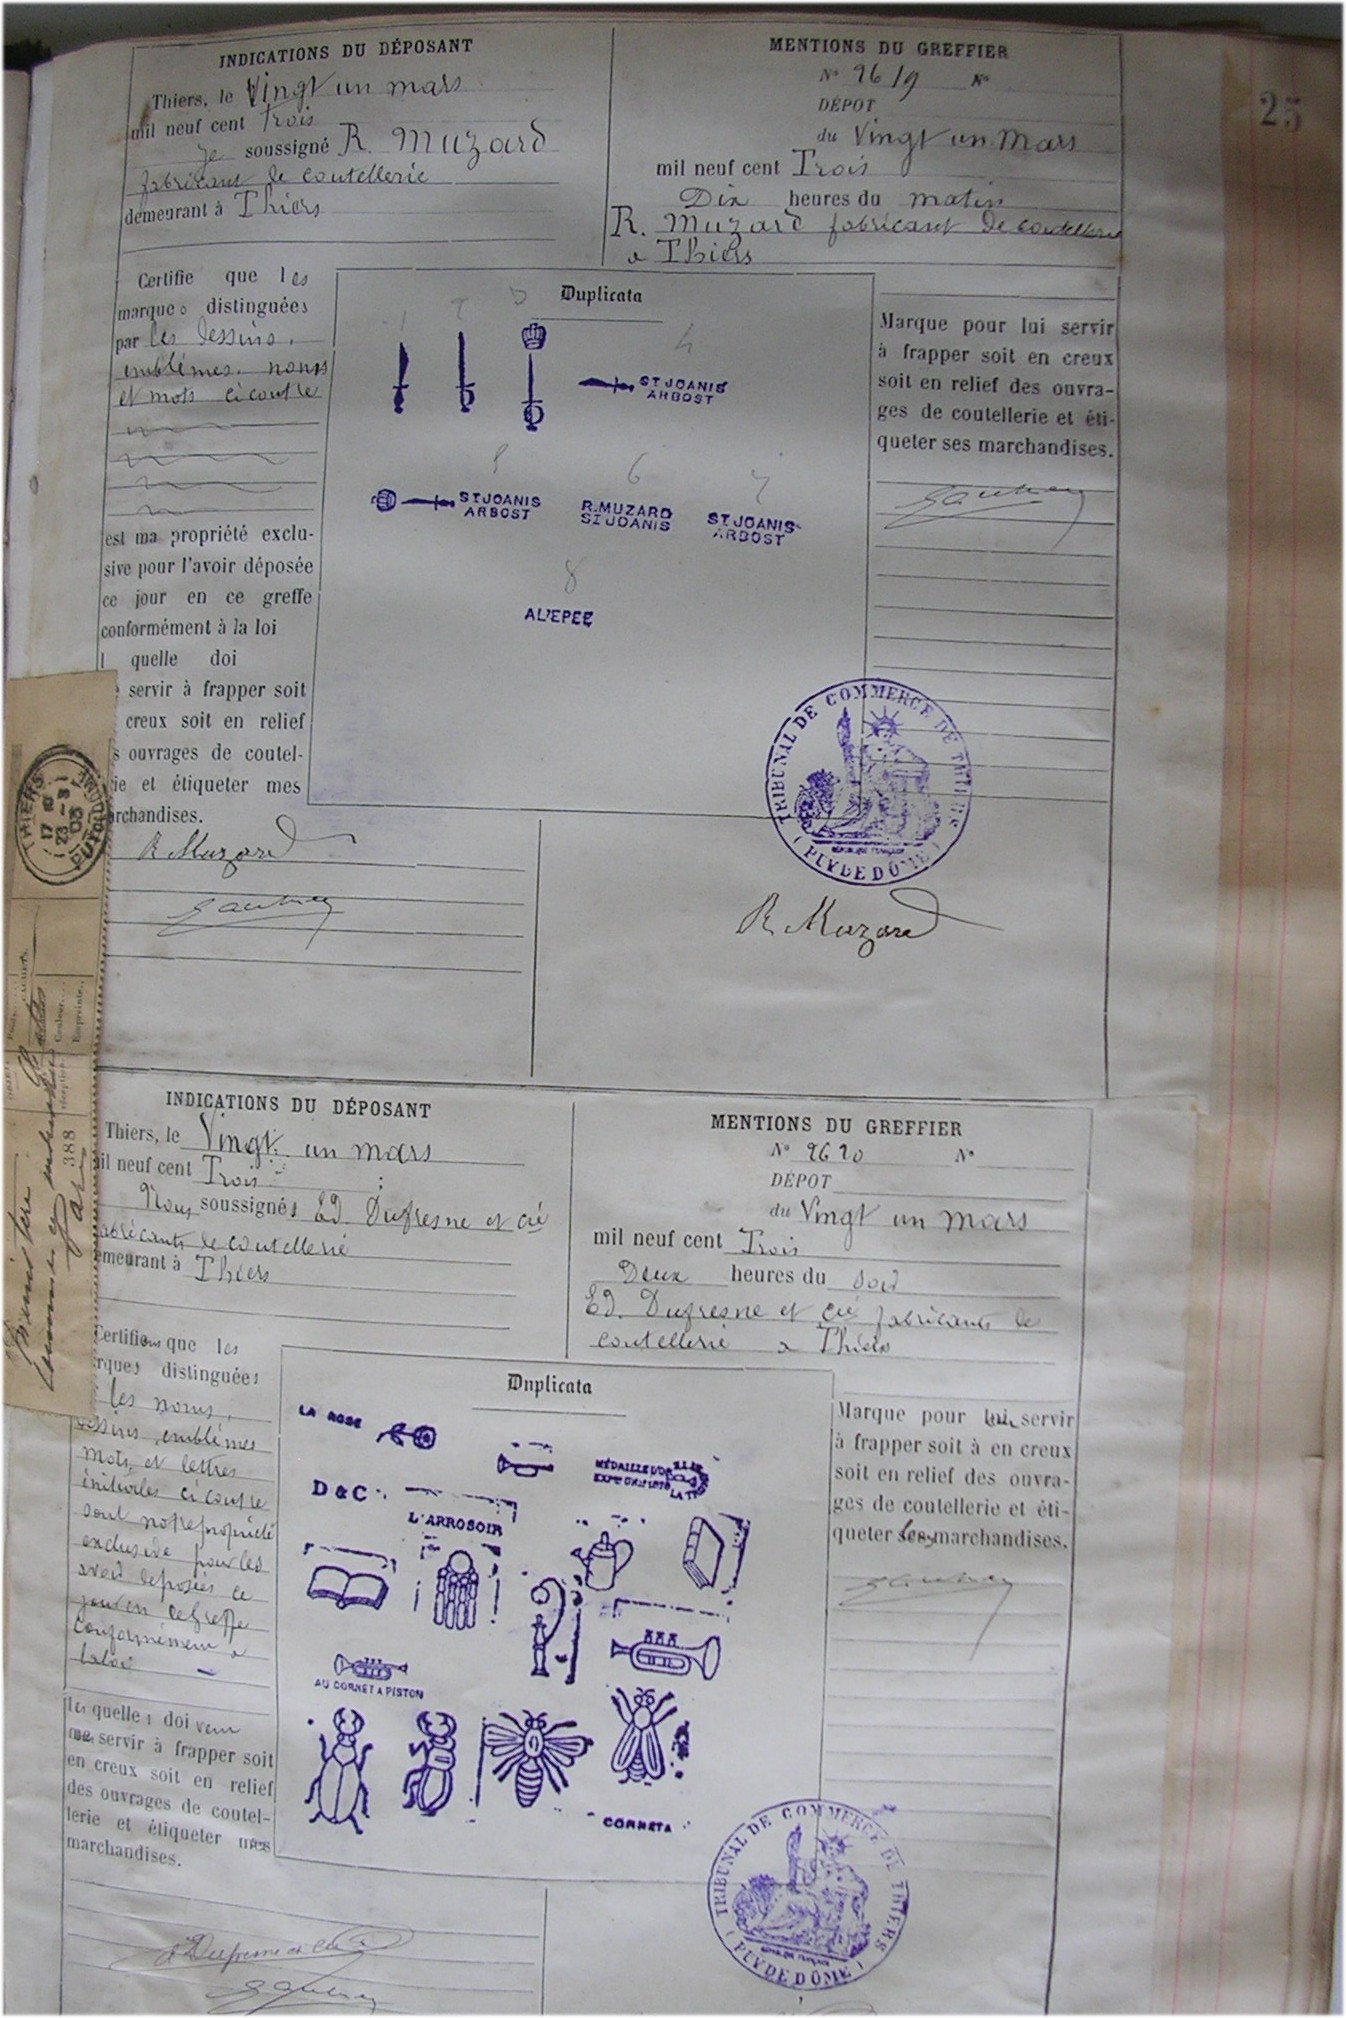 25
INDICATIONS DU DÉPOSANT
Thiers, le Vingt un mars
mil neuf cent Trois
Je soussigné R. Muzard
fabricant de coutellerie
demeurant à Thiers
MENTIONS DU GREFFIER
N° 2619 N°
DÉPOT
du Vingt un Mars
mil neuf cent Trois
Dix heures du matin
R. Muzard fabricant de coutellerie
a Thiers
Certifie que les
marques distinguées
par les dessins,
emblèmes. noms
et mots ci contre
est ma propriété exclu-
sive pour l'avoir déposée
ce jour en ce greffe
conformément à la loi
l quelle doi
servir à frapper soit
creux soit en relief
s ouvrages de coutel-
ie et étiqueter mes
archandises.
R Muzard
Duplicata
1 2 3 4
ST JOANIS
ARBOST
5 6 7
ST JOANIS
ARBOST
R.MUZARD
ST JOANIS
ST JOANIS
ARBOST
8
AL'EPEE
Marque pour lui servir
à frapper soit en creux
soit en relief des ouvra-
ges de coutellerie et éti-
queter ses marchandises.
TRIBUNAL DE COMMERCE DE THIERS
RÉPUBLIQUE FRANÇAISE
(PUY DE DÔME)
R Muzard
THIERS
17
23 -3
03
PUY-DE-DOME
388
INDICATIONS DU DÉPOSANT
Thiers, le Vingt un mars
il neuf cent Trois
Nous soussignés Ed. Dufresne et cie
fabricants de coutellerie
emeurant à Thiers
MENTIONS DU GREFFIER
N° 2620 N°
DÉPOT
du Vingt un mars
mil neuf cent Trois
Deux heures du soir
Ed. Dufresne et cie fabricants de
coutellerie a Thiers
Certifions que les
rques distinguées
les noms,
dessins, emblèmes
mots et lettres
initiales ci contre
sont notre propriété
exclusive pour les
avoir déposées ce
jour en ce greffe
conformément a
la loi
lesquelles doivent
servir à frapper soit
en creux soit en relief
des ouvrages de coutel-
lerie et étiqueter mes
marchandises.
Duplicata
LA ROSE
MÉDAILLE D'OR
D & C
L'ARROSOIR
AU CORNET A PISTON
CORNETA
Marque pour lui servir
à frapper soit à en creux
soit en relief des ouvra-
ges de coutellerie et éti-
queter les marchandises.
TRIBUNAL DE COMMERCE DE THIERS
RÉPUBLIQUE FRANÇAISE
(PUY DE DÔME)
Dufresne et Cie